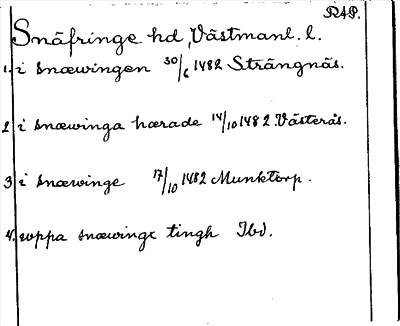 RAP.
Snäfringe hd, Västmanl. l.
1. i snæwingen 30/6 1482 Strängnäs.
2 i snæwinga hærade 14/10 1482 Västerås.
3 i snæwinge 17/10 1482 Munktorp.
4. uppa snæwinge tingh Ibd.